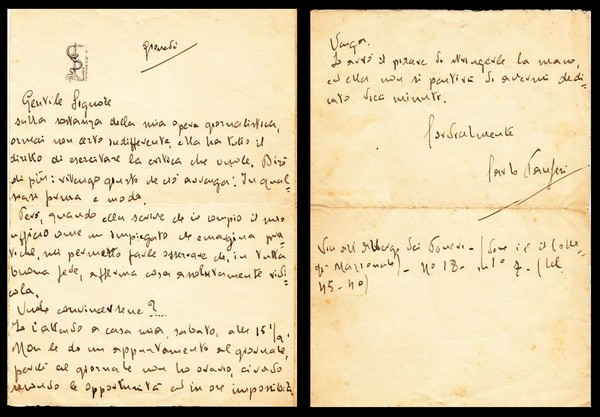 giovedì
Gentile Signore
sulla sostanza della mia opera giornalistica,
ormai non certo indifferente, ella ha tutto il
diritto di esercitare la critica che vuole. Dirò
di più: ritengo giusto che ciò avvenga. In qual-
siasi forma e modo.
Però, quando ella scrive che io compio il mio
ufficio come un impiegato che emargina pra-
tiche, mi permetto farle osservare che, in tutta
buona fede, afferma cosa assolutamente ridi-
cola.
Vuole convincersene?...
Io l'attendo a casa mia, sabato, alle 15 1/2.
Non le do un appuntamento al giornale,
perché al giornale non ho orario, andando
secondo le opportunità ed in ore impossibili.
Venga.
Io avrò il piacere di stringerle la mano,
ed ella non si pentirà di avermi dedi-
cato dieci minuti.
Cordialmente
Carlo
Via dell'Albergo dei Poveri - (dove c'è il Colle-
gio Nazionale) - n° 18 - int° 7 - (tel.
45-40)